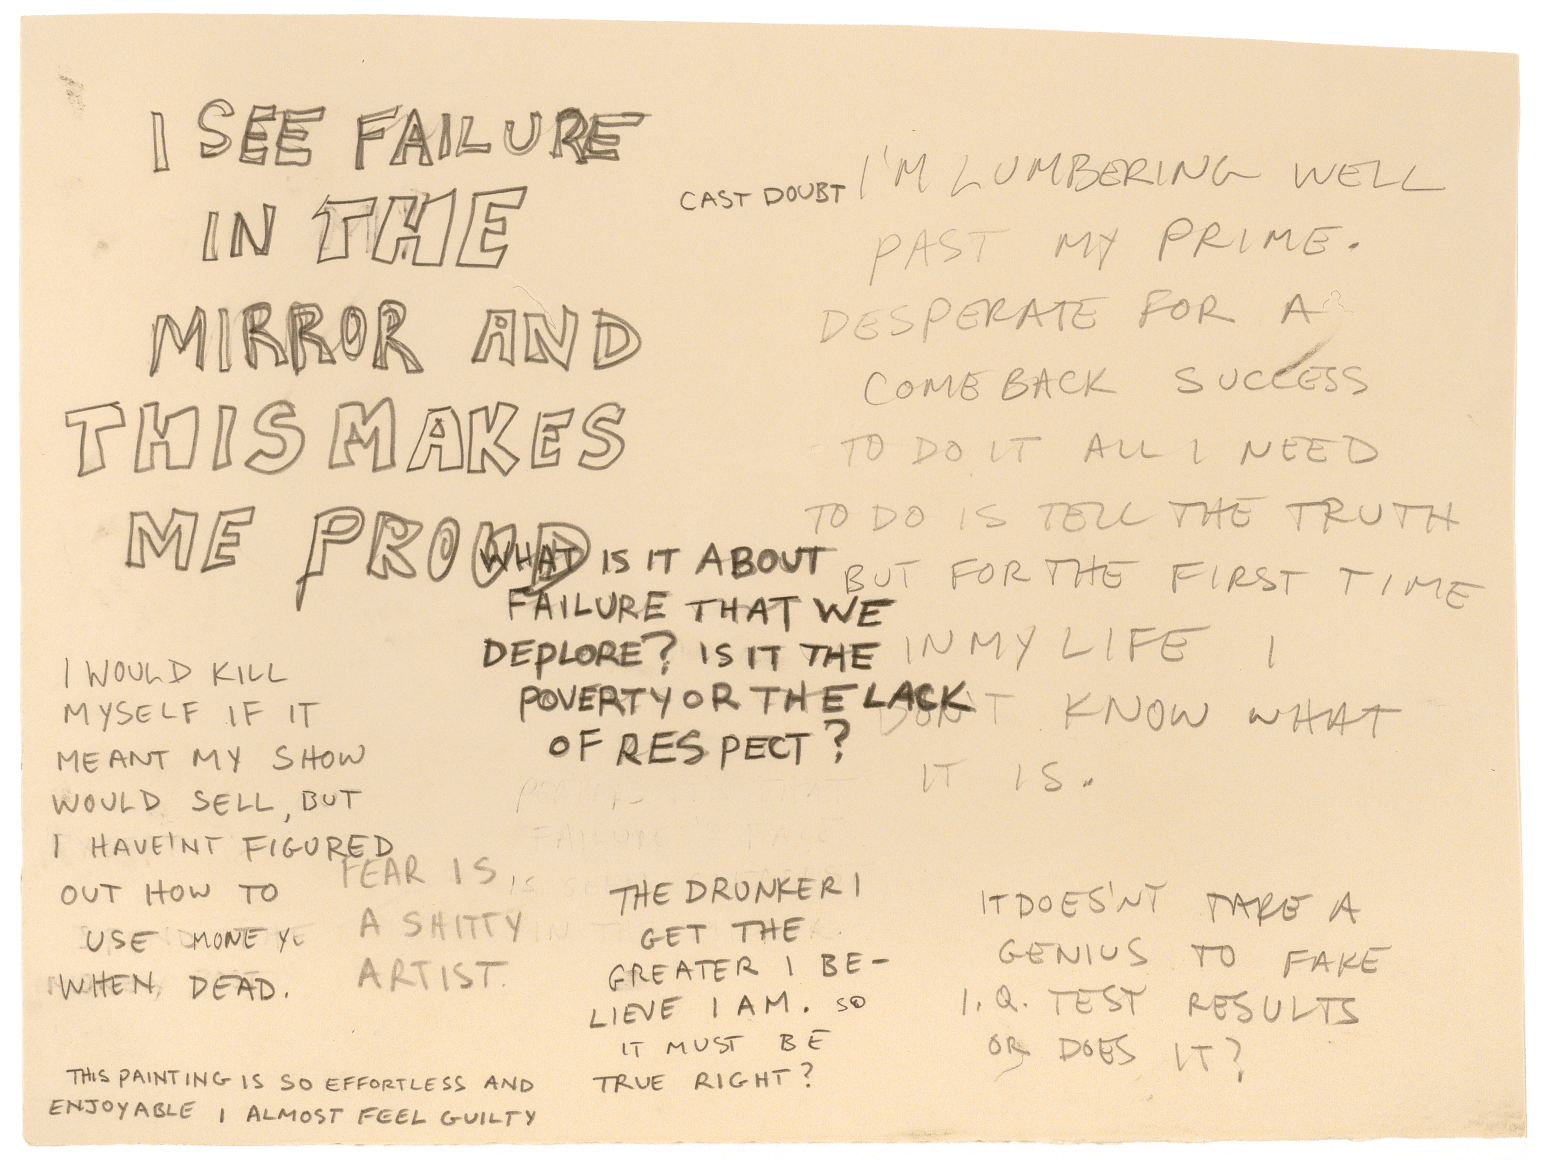 I SEE FAILURE
IN THE
MIRROR AND
THIS MAKES
ME PROUD
CAST DOUBT
I'M LUMBERING WELL
PAST MY PRIME.
DESPERATE FOR A
COMEBACK SUCCESS
TO DO IT ALL I NEED
TO DO IS TELL THE TRUTH
BUT FOR THE FIRST TIME
IN MY LIFE I
DON'T KNOW WHAT
IT IS.
WHAT IS IT ABOUT
FAILURE THAT WE
DEPLORE? IS IT THE
POVERTY OR THE LACK
OF RESPECT?
I WOULD KILL
MYSELF IF IT
MEANT MY SHOW
WOULD SELL, BUT
I HAVE'NT FIGURED
OUT HOW TO
USE MONEY
WHEN DEAD.
FEAR IS
A SHITTY
ARTIST.
FAILURE
IN THE
THE DRUNKER I
GET THE
GREATER I BE-
LIEVE I AM. SO
IT MUST BE
TRUE RIGHT?
IT DOES'NT TAKE A
GENIUS TO FAKE
I.Q. TEST RESULTS
OR DOES IT?
THIS PAINTING IS SO EFFORTLESS AND
ENJOYABLE I ALMOST FEEL GUILTY